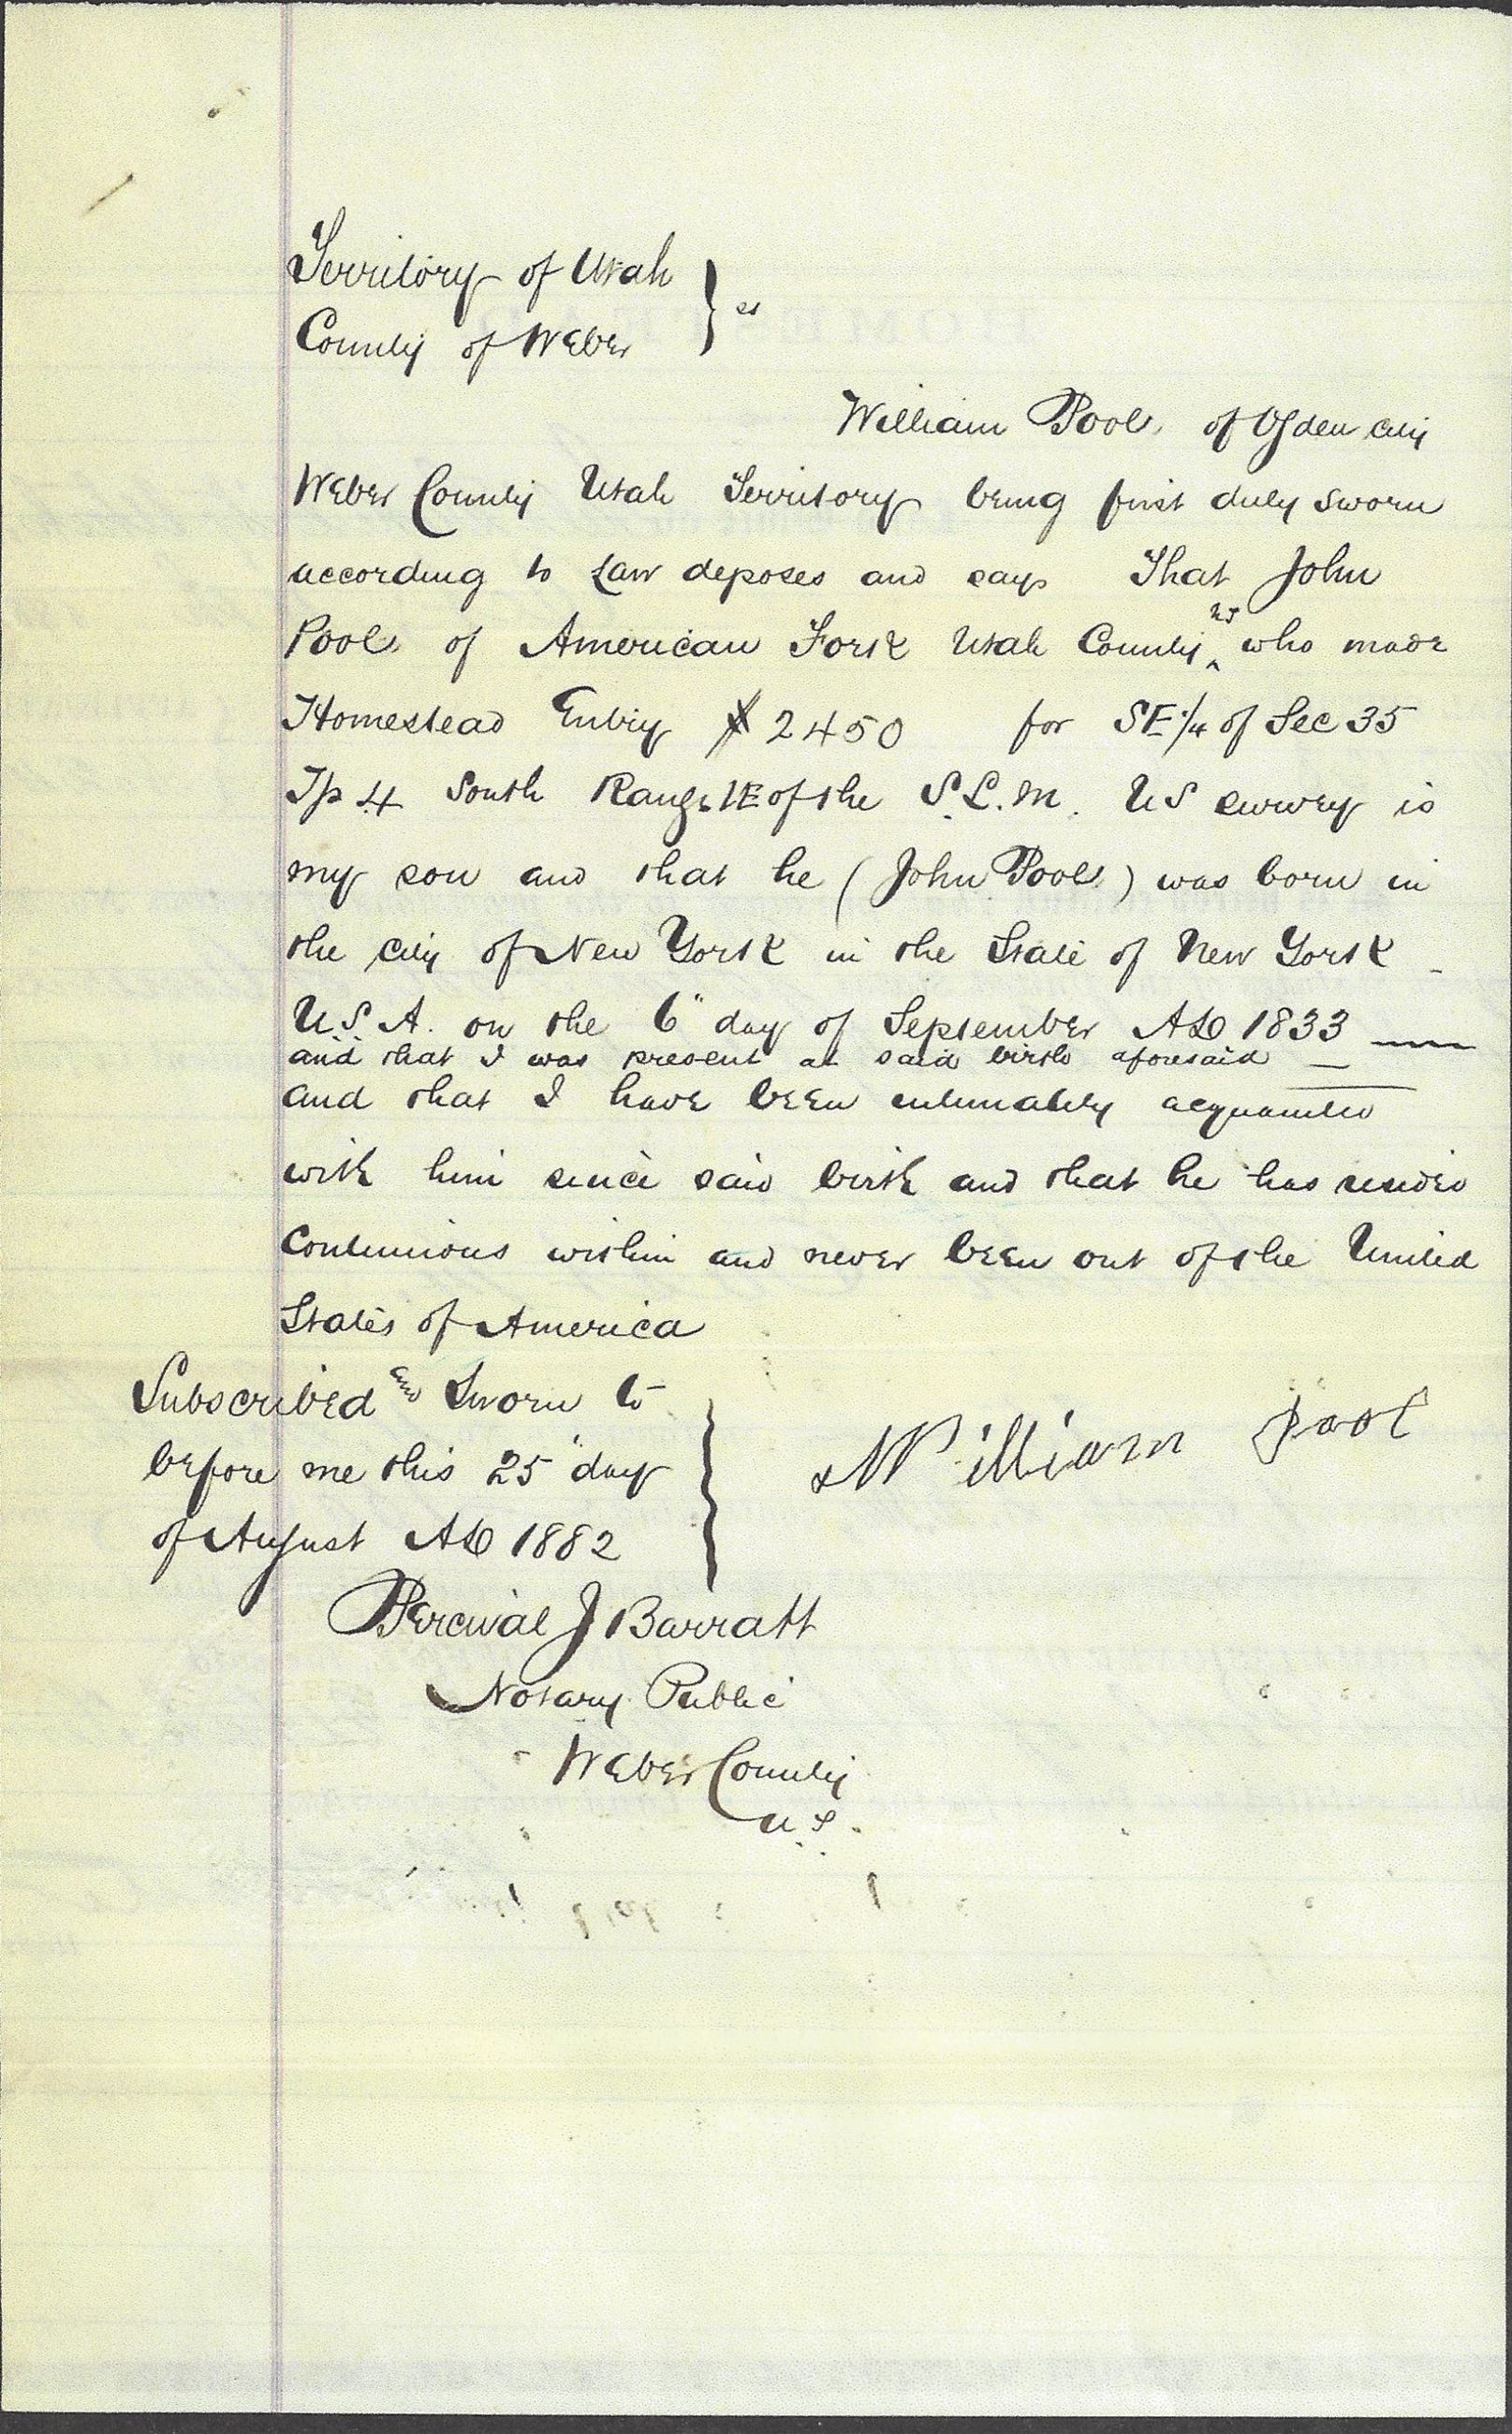 Territory of Utah
County of Weber } ss
William Pool, of Ogden City
Weber County Utah Territory being first duly sworn
according to Law deposes and says That John
Pool, of American Fork Utah County ^ UT who made
Homestead Entry # 2450 for SE 1/4 of Sec 35
Tp 4 South Range 1E of the S.L.M. US survey is
my son and that he (John Pool,) was born in
the city of New York in the State of New York
U.S.A. on the 6" day of September AD 1833
and that I was present at said birth aforesaid
and that I have been intimately acquainted
with him since said birth and that he has resided
Continuious within and never been out of the United
States of America
Subscribed and Sworn to
before me this 25" day
of August AD 1882
William Pool
Percival J Barratt
Notary Public
Weber County
U.T.